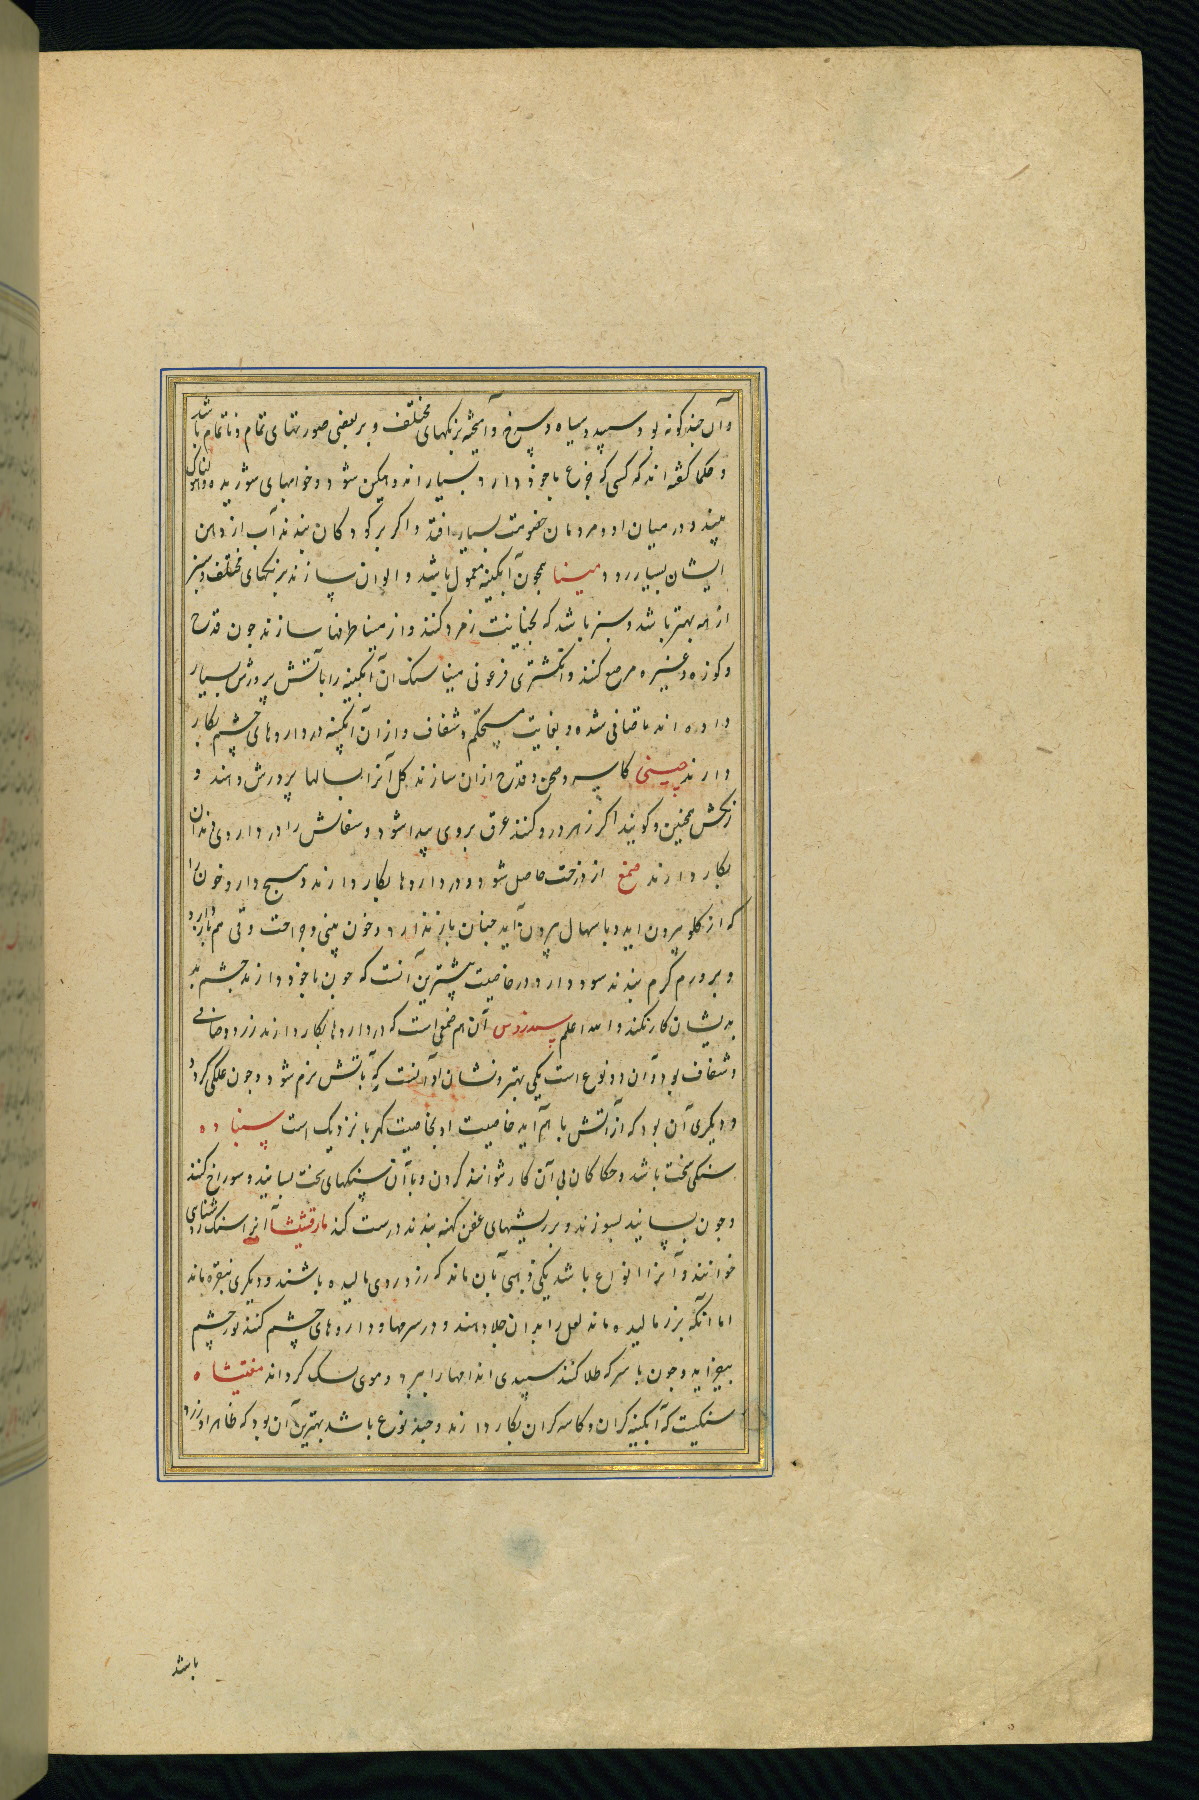 وآن چند کونه بود سپید و سیاه و سرخ و آمیخته برنکهای مختلف و بر بعضی صورتهای تمام و ناتمام باشد
و حکما کفته اند که کسی که جزع با خود دارد بسیار اندوهکین شود و خوابهای شوریده و هولناک
بیند و در میان او و مردمان خصومت بسیار افتد و اکر بر کودکان بندند آب از دهن
ایشان بسیار رود مینا همچون آبکینه معمول باشد و الوان سازند برنکهای مختلف و سبز
از همه بهتر باشد و سبز باشد که بخیانت زمرد کنند و از مینا ظرفها سازند چون قدح
و کوزه و غیره مرصع کنند و انکشتری فرعونی مینا سنک آن آبکینه را با آتش پرورش بسیار
داده اند تا صافی شده و بغایت مستحکم و شفاف و از آن آبکینه در داروهای چشم بکار
دارند چینی کاسه و صحن و قدح ازان سازند کل آنرا بسالها پرورش دهند و
رنکش همچنین و کویند اکر زهر درو کنند عرق بر وی پیدا شود و سفالش را در داروی دندان
بکار دارند صمغ از درخت حاصل شود و در داروها بکار دارند و سبج دارو خون را
که از کلو بیرون اید و باسهال بیرون آید چنان باز ندارد و خون بینی و جراحت وقی هم باز دارد
و بر ورم کرم بندند سود دارد و در خاصیت بیشترین آنست که چون با خود دارند چشم بد
بدیشان کار نکند والله اعلم سندروس آن هم صمغی است که در داروها بکار دارند زرد و صافی
و شفاف بود و آن دو نوع است یکی بهتر و نشان او آنست که بآتش نرم شود و چون علکی کردد
و دیکری آن بود که از آتش باهم آید خاصیت او بخاصیت کهربا نزدیک است سنباده
سنکی سخت باشد و حکاکان بی آن کار نتوانند کردن و با آن سنکهای سخت بسایند و سوراخ کنند
و چون بسایند بسوزند و بر ریشهای عفن کهنه بندند درست کند مارقشیشا آنرا سنک روشنای
خوانند و آنرا انواع باشد یکی ذهبی آبان ماند که زر در وی مالیده باشند و دیکری بنقره ماند
اما آنکه بزر مالیده ماند لعل را بدان جلا دهند و در سرمها و داروهای چشم کنند نور چشم
بیفزاید و چون با سرکه طلا کنند سپیدی اندامها را ببرد و موی سک کرداند مغنیشاه
سنکیست که آبکینه کران و کاسه کران بکار دارند و چند نوع باشد بهترین آن بود که ظاهر او زرد
باشد